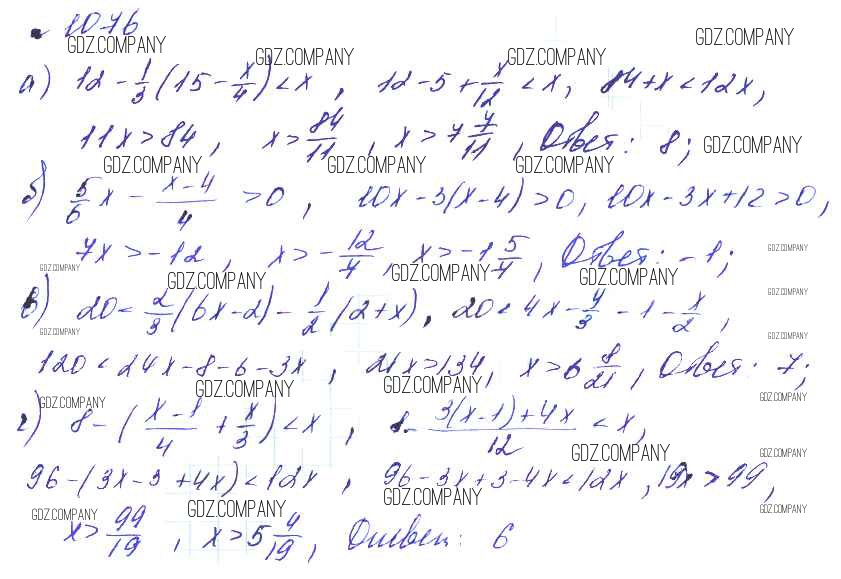 1076
GDZ.COMPANY GDZ.COMPANY GDZ.COMPANY GDZ.COMPANY
а) 12 - 1/3 (15 - x/4) < x, 12 - 5 + x/12 < x, 84 + x < 12x,
11x > 84, x > 84/11, x > 7 7/11, Ответ: 8; GDZ.COMPANY
GDZ.COMPANY GDZ.COMPANY GDZ.COMPANY
б) 5/6 x - (x-4)/4 > 0, 10x - 3(x-4) > 0, 10x - 3x + 12 > 0,
7x > -12, x > -12/7, x > -1 5/7, Ответ: -1; GDZ.COMPANY
GDZ.COMPANY GDZ.COMPANY GDZ.COMPANY GDZ.COMPANY
в) 20 < 2/3 (6x-2) - 1/2 (2+x), 20 < 4x - 4/3 - 1 - x/2, GDZ.COMPANY
GDZ.COMPANY GDZ.COMPANY
120 < 24x - 8 - 6 - 3x, 21x > 134, x > 6 8/21, Ответ: 7;
GDZ.COMPANY GDZ.COMPANY GDZ.COMPANY GDZ.COMPANY
г) 8 - ((x-1)/4 + x/3) < x, 8 - (3(x-1)+4x)/12 < x,
GDZ.COMPANY GDZ.COMPANY
96 - (3x - 3 + 4x) < 12x, 96 - 3x + 3 - 4x < 12x, 19x > 99,
GDZ.COMPANY GDZ.COMPANY GDZ.COMPANY GDZ.COMPANY
x > 99/19, x > 5 4/19, Ответ: 6